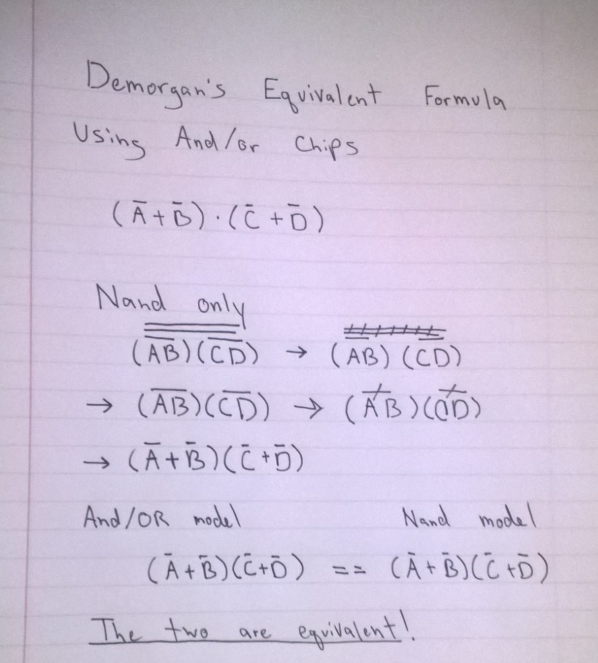 Demorgan's Equivalent Formula
Using And/or Chips
(A̅+B̅)·(C̅+D̅)
Nand only
(A̅B̅)(C̅D̅) → (A̅B̅)(C̅D̅)
→ (A̅B̅)(C̅D̅) → (A̅B̅)(C̅D̅)
→ (A̅+B̅)(C̅+D̅)
And/OR model Nand model
(A̅+B̅)(C̅+D̅) == (A̅+B̅)(C̅+D̅)
The two are equivalent!